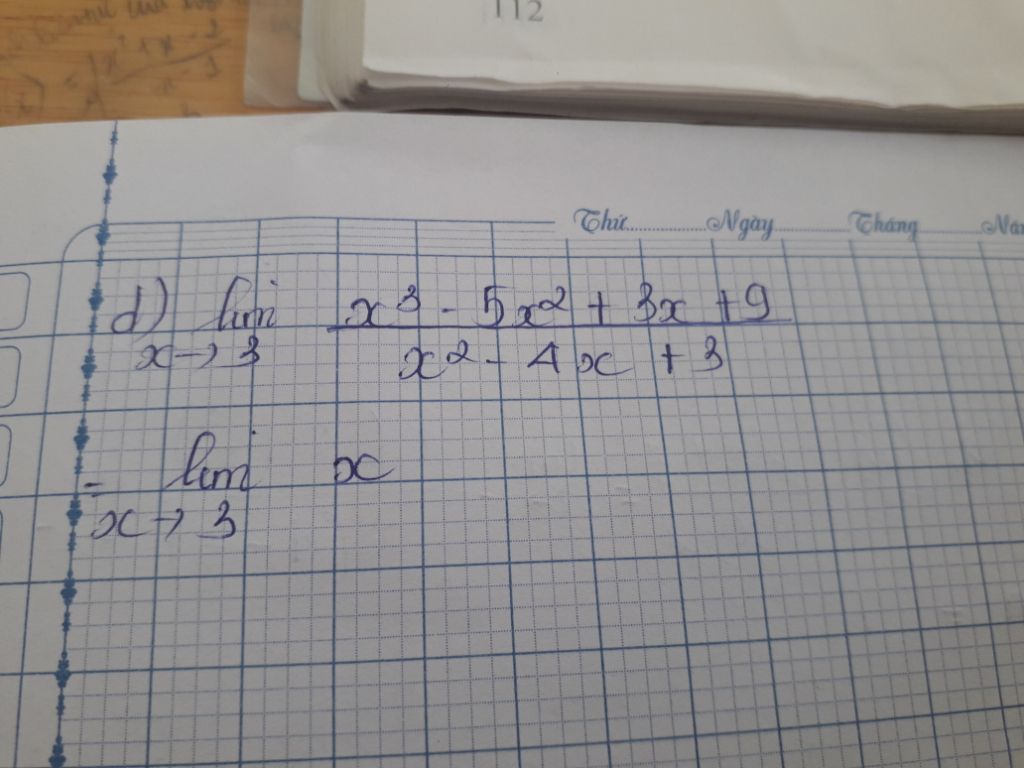 112
Thứ Ngày Tháng
d) lim x³ - 5x² + 3x + 9
x → 3 x² - 4x + 3
= lim x
x → 3